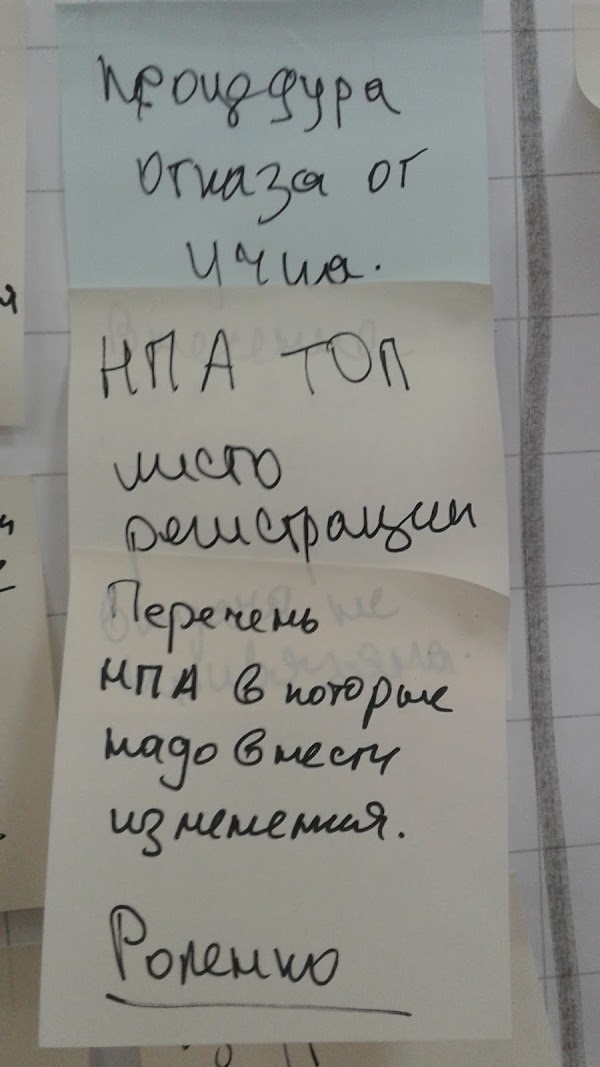 процедура
отказа от
НПА ТОП
место
регистрации
Перечень
НПА в которые
надо внести
изменения.
Роленко